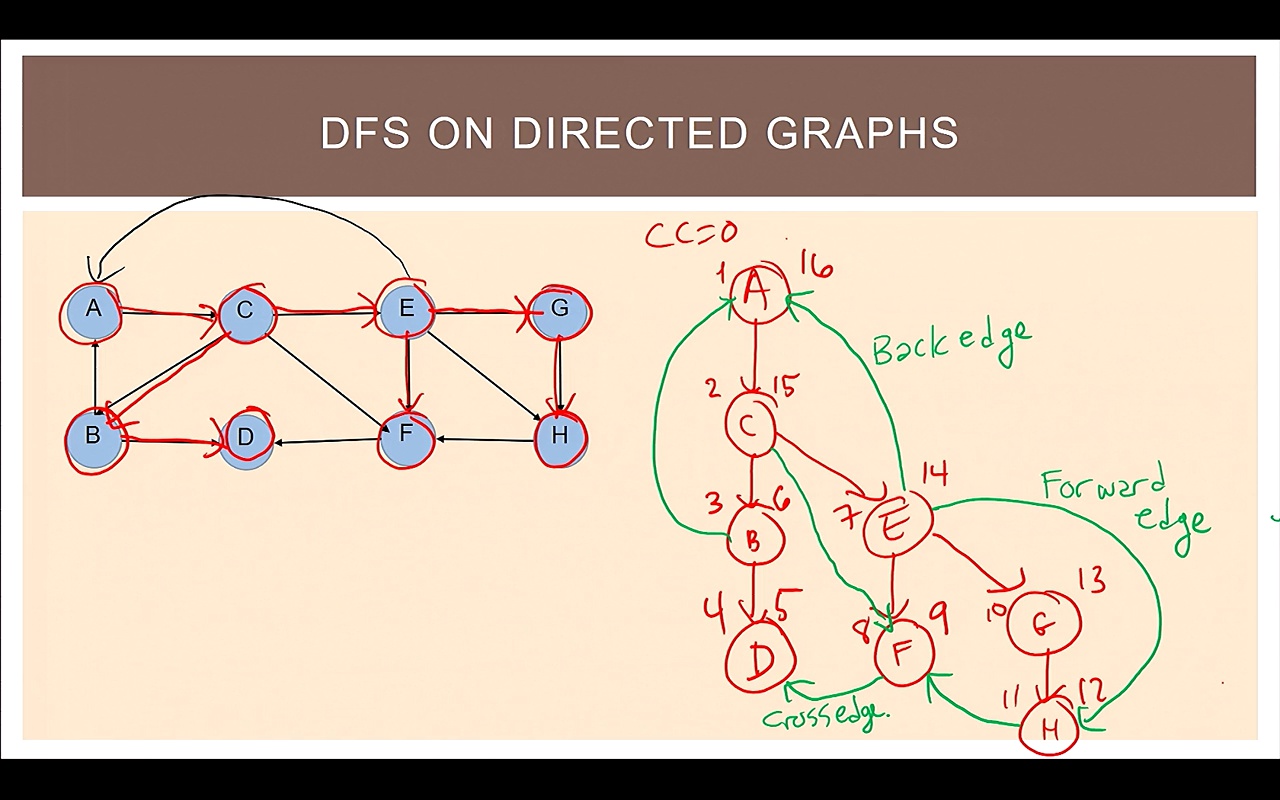 DFS ON DIRECTED GRAPHS
A C E G
B D F H
CC=0
1 A 16
Back edge
2 C 15
3 B 6
7 E 14
Forward
edge
4 D 5
8 F 9
10 G 13
Cross edge.
11 H 12